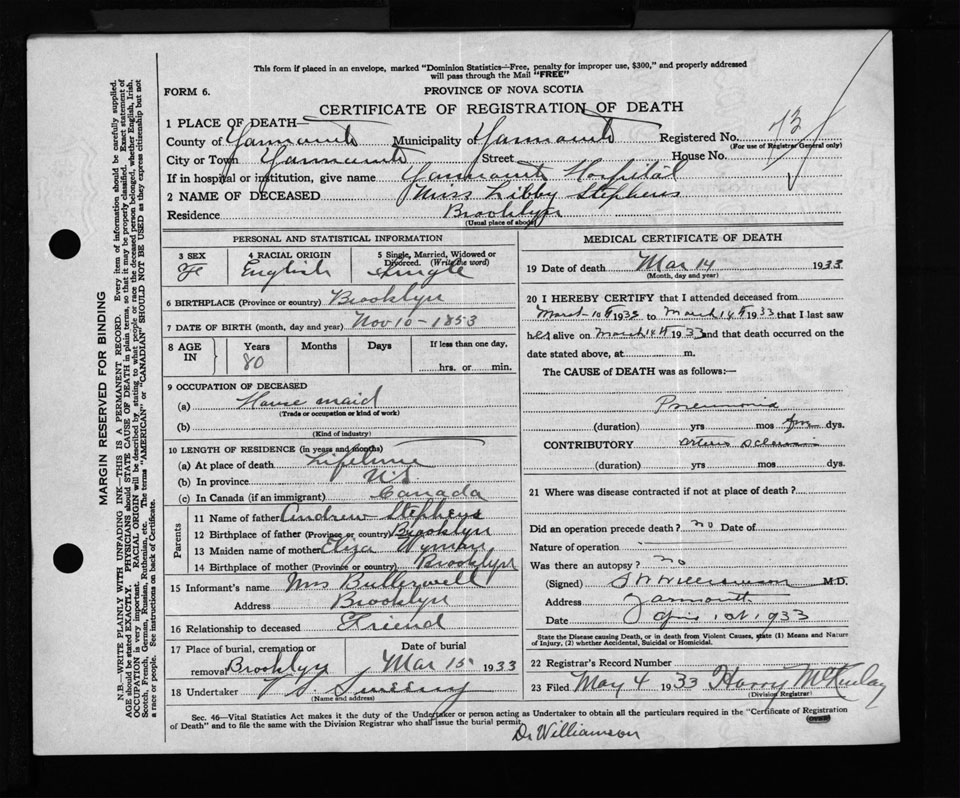 This form if placed in an envelope, marked "Dominion Statistics—Free, penalty for improper use, $300," and properly addressed
will pass through the Mail "FREE"
FORM 6.
PROVINCE OF NOVA SCOTIA
CERTIFICATE OF REGISTRATION OF DEATH
1 PLACE OF DEATH—
County of Yarmouth Municipality of Yarmouth Registered No.
(For use of Registrar General only)
City or Town Yarmouth Street House No.
If in hospital or institution, give name Yarmouth Hospital
2 NAME OF DECEASED Miss Libby Stephens
Residence Brooklyn
(Usual place of abode)
PERSONAL AND STATISTICAL INFORMATION
3 SEX 4 RACIAL ORIGIN 5 Single, Married, Widowed or
Divorced. (Write the word)
Fe English Single
6 BIRTHPLACE (Province or country) Brooklyn
7 DATE OF BIRTH (month, day and year) Nov 10 - 1853
8 AGE IN Years Months Days If less than one day,
80 hrs. or min.
9 OCCUPATION OF DECEASED
(a) House maid
(Trade or occupation or kind of work)
(b)
(Kind of industry)
10 LENGTH OF RESIDENCE (in years and months)
(a) At place of death Lifetime
(b) In province NS
(c) In Canada (if an immigrant) Canada
Parents
11 Name of father Andrew Stephens
12 Birthplace of father (Province or country) Brooklyn
13 Maiden name of mother Eliza Wyman
14 Birthplace of mother (Province or country) Brooklyn
15 Informant's name Mrs Butlerwell
Address Brooklyn
16 Relationship to deceased Friend
17 Place of burial, cremation or Date of burial
removal Brooklyn Mar 15 1933
18 Undertaker V S Sweeny
(Name and address)
MEDICAL CERTIFICATE OF DEATH
19 Date of death Mar 14 1933
(Month, day and year)
20 I HEREBY CERTIFY that I attended deceased from
March 10th 1933 to March 14th 1933 that I last saw
her alive on March 14th 1933 and that death occurred on
the date stated above, at m.
The CAUSE of DEATH was as follows:—
Pneumonia
(duration) yrs mos dys.
CONTRIBUTORY
(duration) yrs mos dys.
21 Where was disease contracted if not at place of death?
Did an operation precede death? no Date of
Nature of operation
Was there an autopsy? no
(Signed) Williamson M.D.
Address Yarmouth
Date April 1st 1933
State the Disease causing Death, or in death from Violent Causes, state (1) Means and Nature
of Injury, (2) whether Accidental, Suicidal or Homicidal.
22 Registrar's Record Number
23 Filed May 4 1933 Harry McKinlay
(Division Registrar)
Sec. 46—Vital Statistics Act makes it the duty of the Undertaker or person acting as Undertaker to obtain all the particulars required in the "Certificate of Registration
of Death" and to file the same with the Division Registrar who shall issue the burial permit.
Dr Williamson
MARGIN RESERVED FOR BINDING
N.B.—WRITE PLAINLY WITH UNFADING INK—THIS IS A PERMANENT RECORD. Every item of information should be carefully supplied.
AGE should be stated EXACTLY. PHYSICIANS should STATE CAUSE OF DEATH in plain terms, so that it may be properly classified. Exact statement of
OCCUPATION is very important. RACIAL ORIGIN will be described by stating to what people or race the deceased person belonged, whether English, Irish,
Scotch, French, German, Russian, Ruthenian, etc. The terms "AMERICAN" or "CANADIAN" SHOULD NOT BE USED as they express citizenship but not
a race or people. See instructions on back of Certificate.